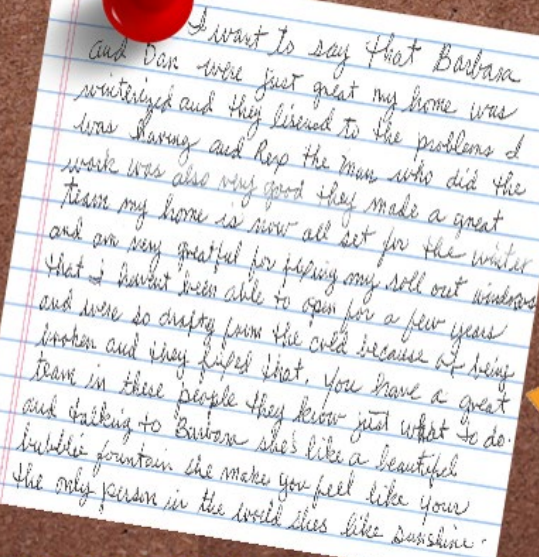 I want to say that Barbara
and Dan were just great my home was
winterized and they lisened to the problems I
was having and Rex the man who did the
work was also very good they made a great
team my home is now all set for the winter
and am very greatful for fixing my roll out windows
that I havent been able to open for a few years
and were so drafty from the cold because of being
broken and they fixed that. You have a great
team in these people they know just what to do.
and talking to Barbara she's like a beautiful
bubblie fountain she makes you feel like your
the only person in the world shes like sunshine.